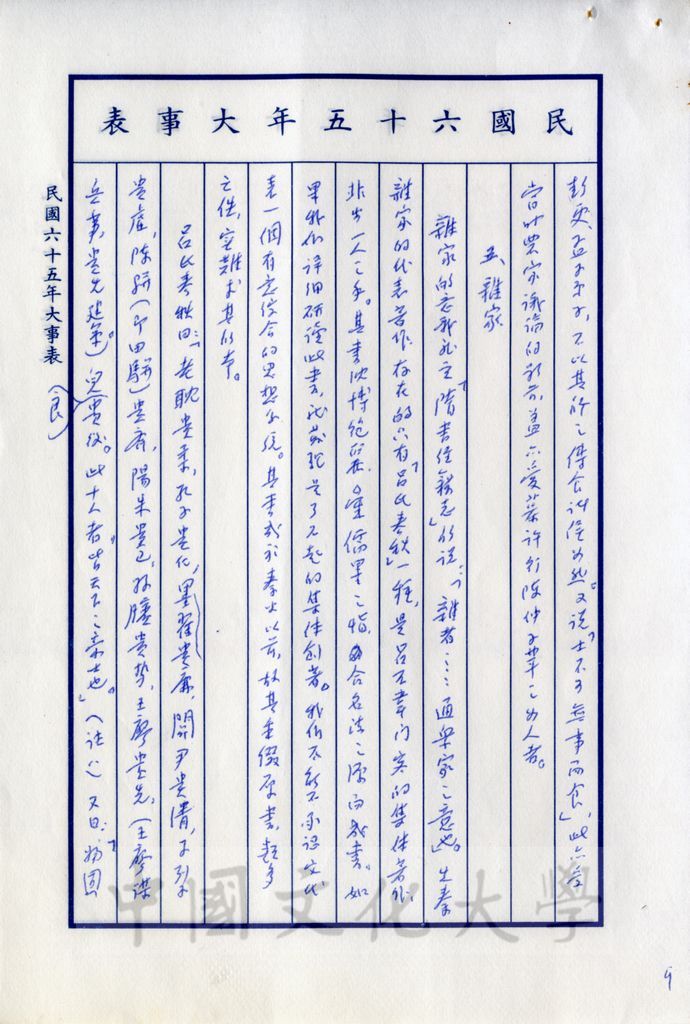 民國六十五年大事表
彭更、孟子弟子，不以其所之傳食諸侯為然。又說「士不可無事而食」，此亦受
當時農家議論的影響，蓋亦愛慕許行陳仲子輩之為人者。
五、雜家
雜家的意義於「隋書經籍志」的說：「雜者……通眾家之意也。」先秦
雜家的代表著作，存在的只有「呂氏春秋」一種，是呂不韋門客的集体著作，
非出一人之手。其書沈博絕麗，彙儒墨之恉，合名法之源而成書。如
果我們詳細研讀此書，說是了不起的集体創著。我們不能不承認文化
表一個有意綜合的思想系統。其書成於秦火以前，故其重徵原書，超多
亡佚，字難
呂氏春秋曰：「老耽貴柔，孔子貴化，墨翟貴廉，關尹貴清，子列子
貴虛，陳駢（即田駢）貴齊，陽朱貴己，孫臏貴勢，王廖貴先，（王廖謀
兵事，貴先建策）兒（良）貴後。此十人者皆天下之豪士也。」（註八）又曰：「物固
民國六十五年大事表
中國文化大學
9